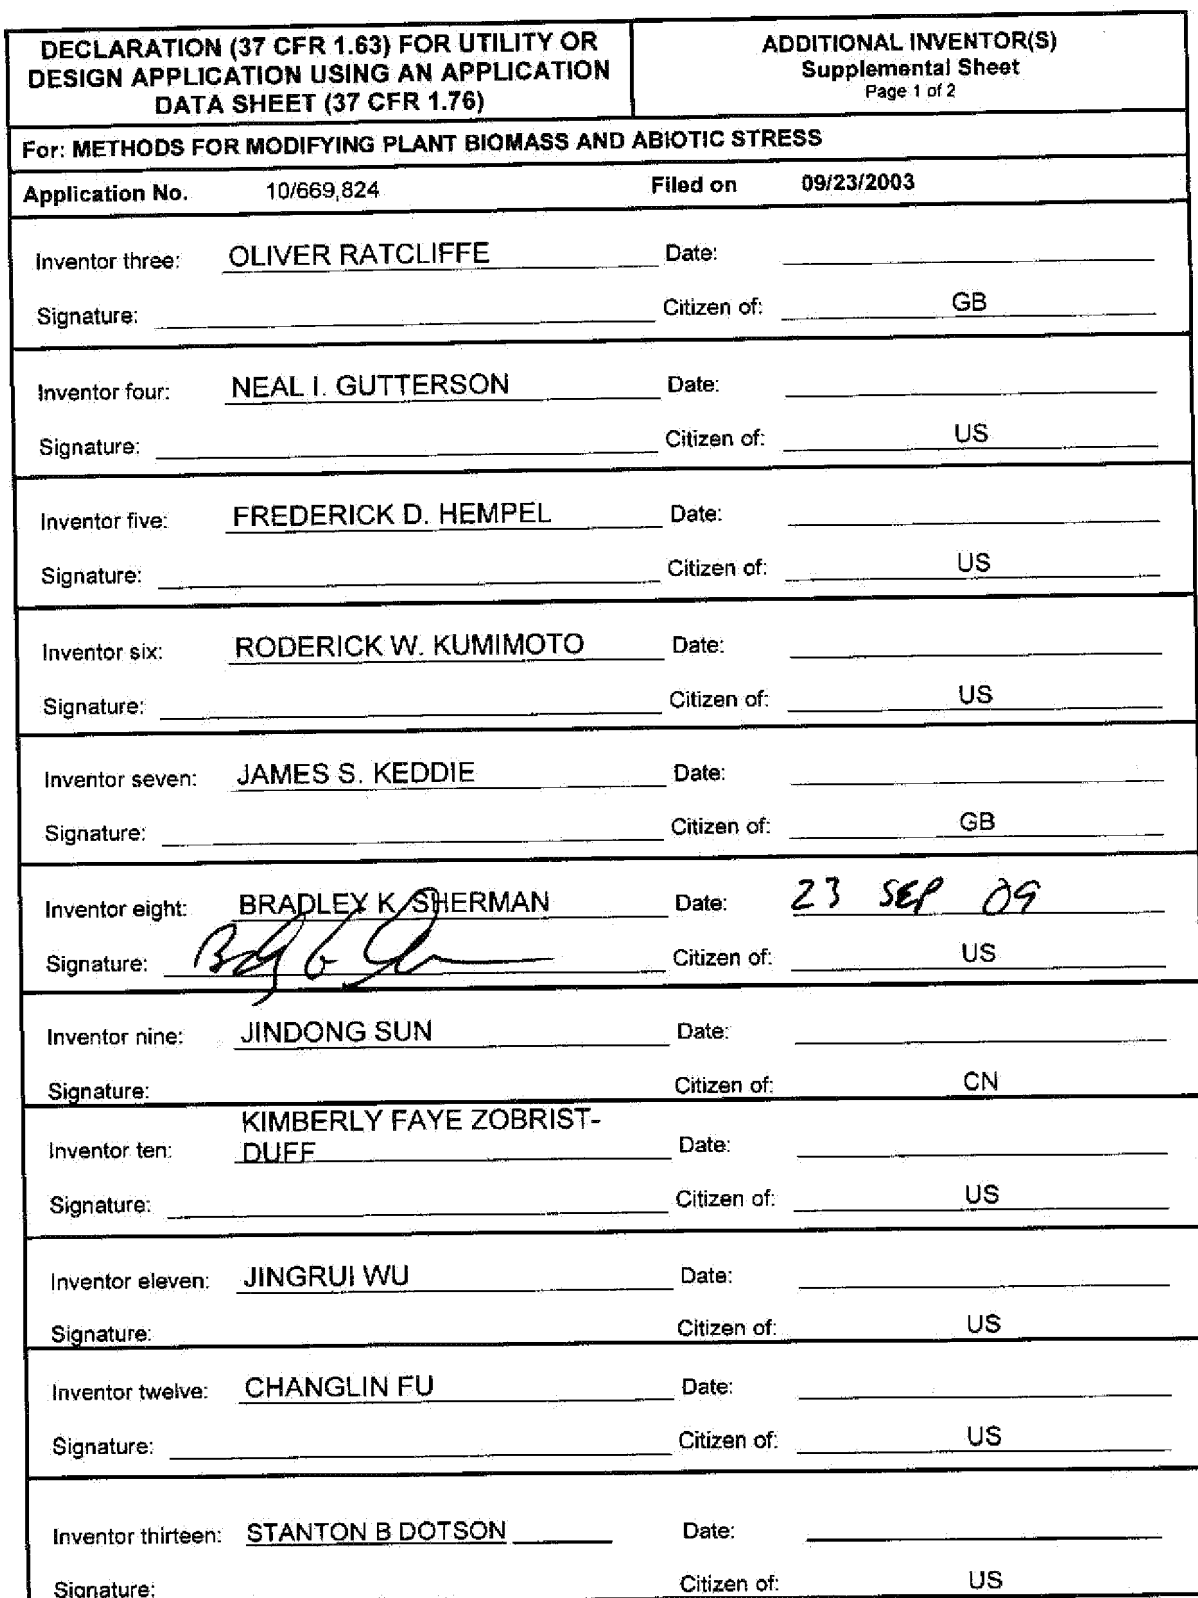 DECLARATION (37 CFR 1.63) FOR UTILITY OR
DESIGN APPLICATION USING AN APPLICATION
DATA SHEET (37 CFR 1.76)
ADDITIONAL INVENTOR(S)
Supplemental Sheet
Page 1 of 2
For: METHODS FOR MODIFYING PLANT BIOMASS AND ABIOTIC STRESS
Application No. 10/669,824 Filed on 09/23/2003
Inventor three: OLIVER RATCLIFFE Date:
Signature: Citizen of: GB
Inventor four: NEAL I. GUTTERSON Date:
Signature: Citizen of: US
Inventor five: FREDERICK D. HEMPEL Date:
Signature: Citizen of: US
Inventor six: RODERICK W. KUMIMOTO Date:
Signature: Citizen of: US
Inventor seven: JAMES S. KEDDIE Date:
Signature: Citizen of: GB
Inventor eight: BRADLEY K. SHERMAN Date: 23 SEP 09
Signature: Citizen of: US
Inventor nine: JINDONG SUN Date:
Signature: Citizen of: CN
KIMBERLY FAYE ZOBRIST-
Inventor ten: DUFF Date:
Signature: Citizen of: US
Inventor eleven: JINGRUI WU Date:
Signature: Citizen of: US
Inventor twelve: CHANGLIN FU Date:
Signature: Citizen of: US
Inventor thirteen: STANTON B DOTSON Date:
Signature: Citizen of: US